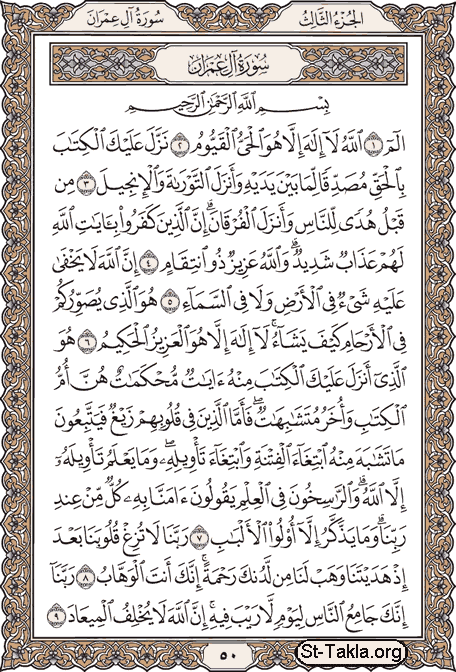 سُورَةُ آلِ عِمْرَانَ الجُزْءُ الثَّالِثُ
سُورَةُ آلِ عِمْرَانَ
بِسْمِ ٱللَّهِ ٱلرَّحْمَٰنِ ٱلرَّحِيمِ
الٓمٓ ١ ٱللَّهُ لَآ إِلَٰهَ إِلَّا هُوَ ٱلْحَىُّ ٱلْقَيُّومُ ٢ نَزَّلَ عَلَيْكَ ٱلْكِتَٰبَ
بِٱلْحَقِّ مُصَدِّقًا لِّمَا بَيْنَ يَدَيْهِ وَأَنزَلَ ٱلتَّوْرَىٰةَ وَٱلْإِنجِيلَ ٣ مِن
قَبْلُ هُدًى لِّلنَّاسِ وَأَنزَلَ ٱلْفُرْقَانَ ۗ إِنَّ ٱلَّذِينَ كَفَرُوا۟ بِـَٔايَٰتِ ٱللَّهِ
لَهُمْ عَذَابٌ شَدِيدٌ ۗ وَٱللَّهُ عَزِيزٌ ذُو ٱنتِقَامٍ ٤ إِنَّ ٱللَّهَ لَا يَخْفَىٰ
عَلَيْهِ شَىْءٌ فِى ٱلْأَرْضِ وَلَا فِى ٱلسَّمَآءِ ٥ هُوَ ٱلَّذِى يُصَوِّرُكُمْ
فِى ٱلْأَرْحَامِ كَيْفَ يَشَآءُ ۚ لَآ إِلَٰهَ إِلَّا هُوَ ٱلْعَزِيزُ ٱلْحَكِيمُ ٦ هُوَ
ٱلَّذِىٓ أَنزَلَ عَلَيْكَ ٱلْكِتَٰبَ مِنْهُ ءَايَٰتٌ مُّحْكَمَٰتٌ هُنَّ أُمُّ
ٱلْكِتَٰبِ وَأُخَرُ مُتَشَٰبِهَٰتٌ ۖ فَأَمَّا ٱلَّذِينَ فِى قُلُوبِهِمْ زَيْغٌ فَيَتَّبِعُونَ
مَا تَشَٰبَهَ مِنْهُ ٱبْتِغَآءَ ٱلْفِتْنَةِ وَٱبْتِغَآءَ تَأْوِيلِهِۦ ۗ وَمَا يَعْلَمُ تَأْوِيلَهُۥٓ
إِلَّا ٱللَّهُ ۗ وَٱلرَّٰسِخُونَ فِى ٱلْعِلْمِ يَقُولُونَ ءَامَنَّا بِهِۦ كُلٌّ مِّنْ عِندِ
رَبِّنَا ۗ وَمَا يَذَّكَّرُ إِلَّآ أُو۟لُوا۟ ٱلْأَلْبَٰبِ ٧ رَبَّنَا لَا تُزِغْ قُلُوبَنَا بَعْدَ
إِذْ هَدَيْتَنَا وَهَبْ لَنَا مِن لَّدُنكَ رَحْمَةً ۚ إِنَّكَ أَنتَ ٱلْوَهَّابُ ٨ رَبَّنَآ
إِنَّكَ جَامِعُ ٱلنَّاسِ لِيَوْمٍ لَّا رَيْبَ فِيهِ ۚ إِنَّ ٱللَّهَ لَا يُخْلِفُ ٱلْمِيعَادَ ٩
٥٠
St-Takla.org